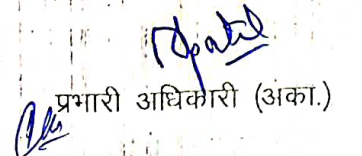 प्रभारी अधिकारी (अका.)